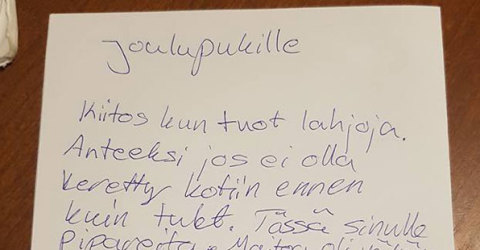 Joulupukille
Kiitos kun tuot lahjoja.
Anteeksi jos ei olla
keretty kotiin ennen
kuin tulet. Tässä sinulle
Pipareita